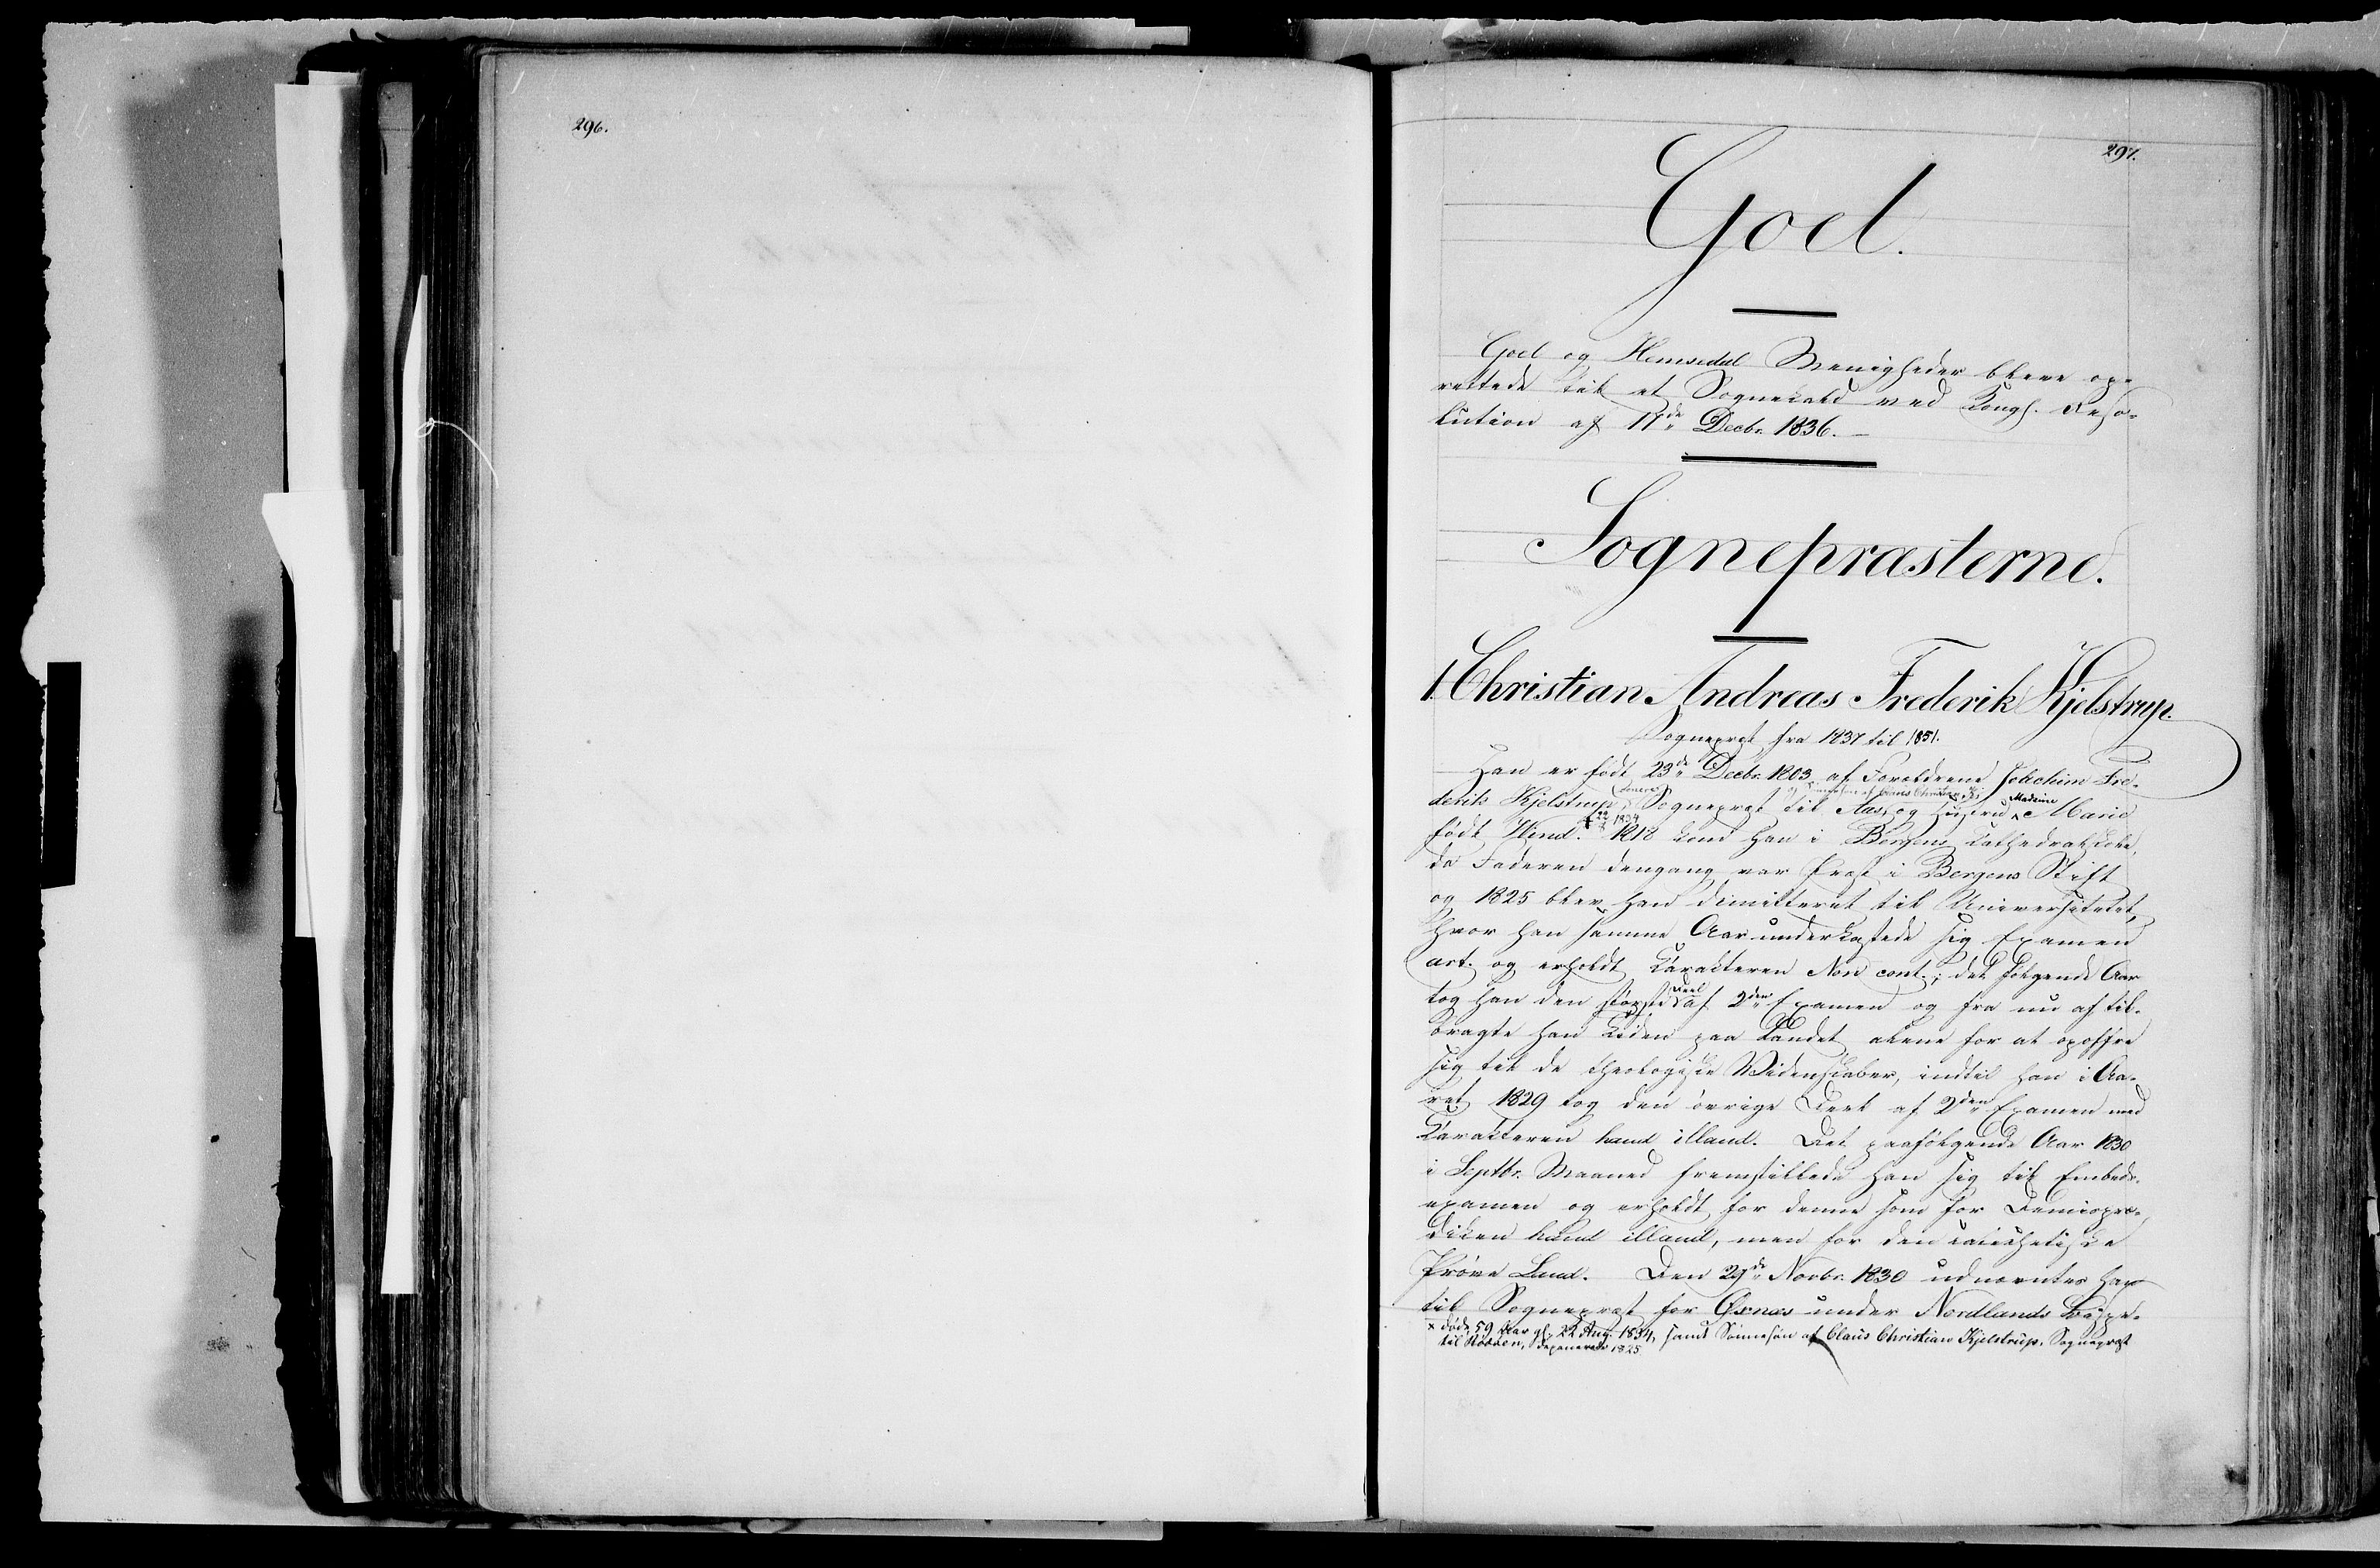 296.
297.
Goel.
Goel og Hemsedal Menigheder bleve op-
rettede til et Sognekald ved Kongl. Reso-
lution af 11de Decbr. 1836.
Sognepræsterne.
1. Christian Andreas Frederik Kjelstrup.
Sognepræst fra 1837 til 1851.
Han er født 23de Decbr. 1803 af Forældrene Jochim Fre-
senere og Sønnesøn af Claus Christian
derik Kjelstrup, Sognepræst til Aas, og Hustru Madsine Marie
† 22/8 1834
født Wind. 1818 kom han i Bergens Kathedralskole,
da Faderen dengang var Præst i Bergens Stift
og 1825 blev han dimitteret til Universitetet,
hvor han samme Aar underkastede sig Examen
art. og erholdt Karakteren Non cont.; det følgende Aar
tog han den største Deel af 2den Examen og fra nu af til-
bragte han Tiden paa Landet alene for at opoffre
sig til de theologiske Videnskaber, indtil han i Aa-
ret 1829 tog den øvrige Deel af 2den Examen med
Karakteren haud illaud. Det paafølgende Aar 1830
i Septbr. Maaned fremstillede han sig til Embeds-
examen og erholdt for denne som for Demispræ-
diken haud illaud, men for den katechetiske
Prøve Laud. Den 29de Novbr. 1830 udnævntes han
til Sognepræst for Øxnæs under Nordlands Bispe-
x døde 59 Aar gl. 22 Aug. 1834, samt Sønnesøn af Claus Christian Kjelstrup, Sognepræst
til deponerede 1825